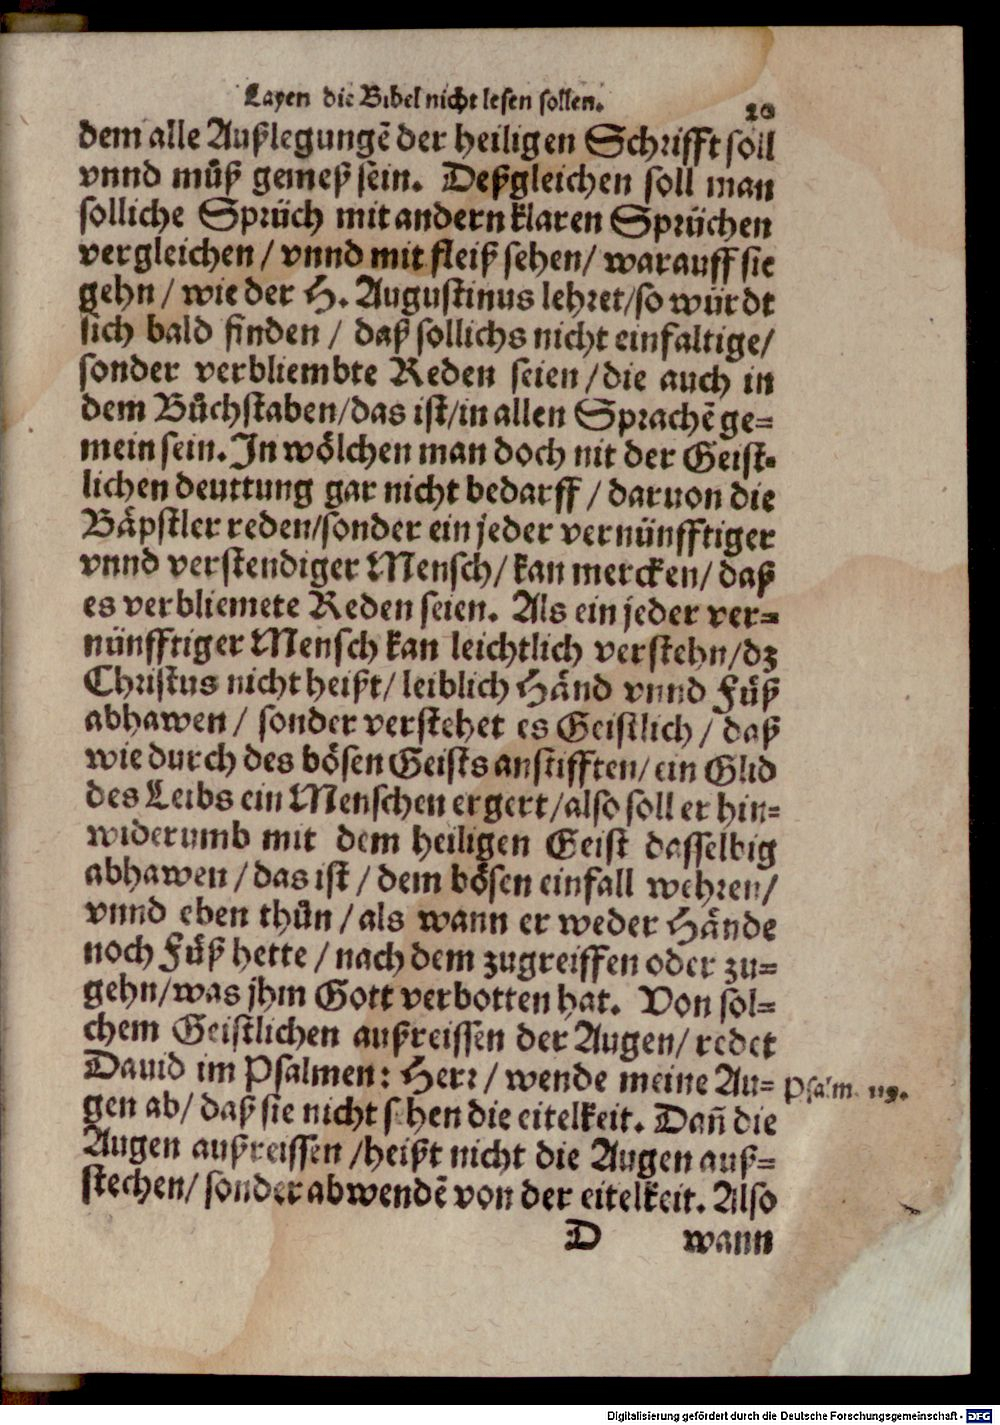 Layen die Bibel nicht lesen sollen.
dem alle Außlegungẽ der heiligen Schrifft soll
vnnd můß gemeß sein. Deßgleichen soll man
solliche Sprüch mit andern klaren Sprüchen
vergleichen / vnnd mit fleiß sehen / warauff sie
gehn / wie der H. Augustinus lehret / so würdt
sich bald finden / daß sollichs nicht einfaltige /
sonder verbliembte Reden seien / die auch in
dem Bůchstaben / das ist / in allen Sprachẽ ge=
mein sein. In wölchen man doch nit der Geist=
lichen deuttung gar nicht bedarff / daruon die
Bäpstler reden / sonder ein jeder vernünfftiger
vnnd verstendiger Mensch / kan mercken / daß
es verbliemete Reden seien. Als ein jeder ver=
nünfftiger Mensch kan leichtlich verstehn / dz
Christus nicht heißt / leiblich Händ vnnd Füß
abhawen / sonder verstehet es Geistlich / daß
wie durch des bösen Geists anstifften / ein Glid
des Leibs ein Menschen ergert / also soll er hin=
widerumb mit dem heiligen Geist dasselbig
abhawen / das ist / dem bösen einfall wehren /
vnnd eben thůn / als wann er weder Hände
noch Füß hette / nach dem zugreiffen oder zu=
gehn / was jhm Gott verbotten hat. Von sol=
chem Geistlichen außreissen der Augen / redet
Dauid im Psalmen: Herr / wende meine Au=
Psalm. 119.
gen ab / daß sie nicht sehen die eitelkeit. Dañ die
Augen außreissen / heißt nicht die Augen auß=
stechen / sonder abwendẽ von der eitelkeit. Also
D wann
Digitalisierung gefördert durch die Deutsche Forschungsgemeinschaft - DFG